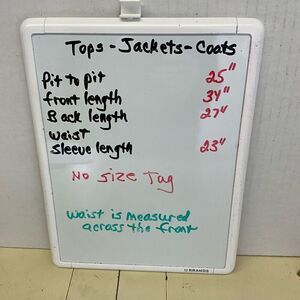 Tops - Jackets - Coats
Pit to pit 25"
front length 34"
Back length 27"
waist
Sleeve length 23"
No Size Tag
waist is measured
across the front
U BRANDS